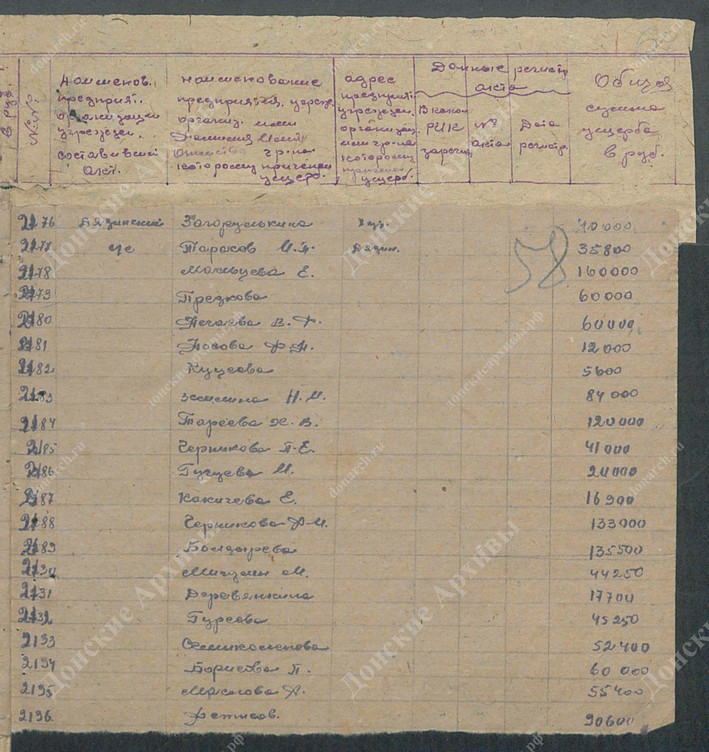 Наименов. предприят. организации учрежден. составивший акт.
наименование предприятия, учрежд. организ. или Фамилия Имя Отчество гр-на которому причинен ущерб.
адрес предприят. учрежден. организац. или гр-на которому причинен ущерб.
Данные регистр. акта
В каком РИК зарегис.
№ акта
Дата регистр.
Общая сумма ущерба в руб.
58
2176 Загорулькина 10000
2177 Тарасов М.П. 35800
2178 Мальцева Е. 160000
2179 60000
2180 Нечаева В.Ф. 60000
2181 Носова 12000
2182 5600
2183 Н.М. 84000
2184 120000
2185 Черникова П.Е. 41000
2186 М. 24000
2187 Какичева Е. 16900
2188 Черникова А.И. 133000
2189 Болдырева 135500
2190 М. 44250
2191 Деревянкина 17700
2192 Гуреева 45250
2193 52400
2194 Борисова П. 60000
2195 55400
2196. Фетисов. 90600
Донские Архивы
donarch.ru
донскиеархивы.рф